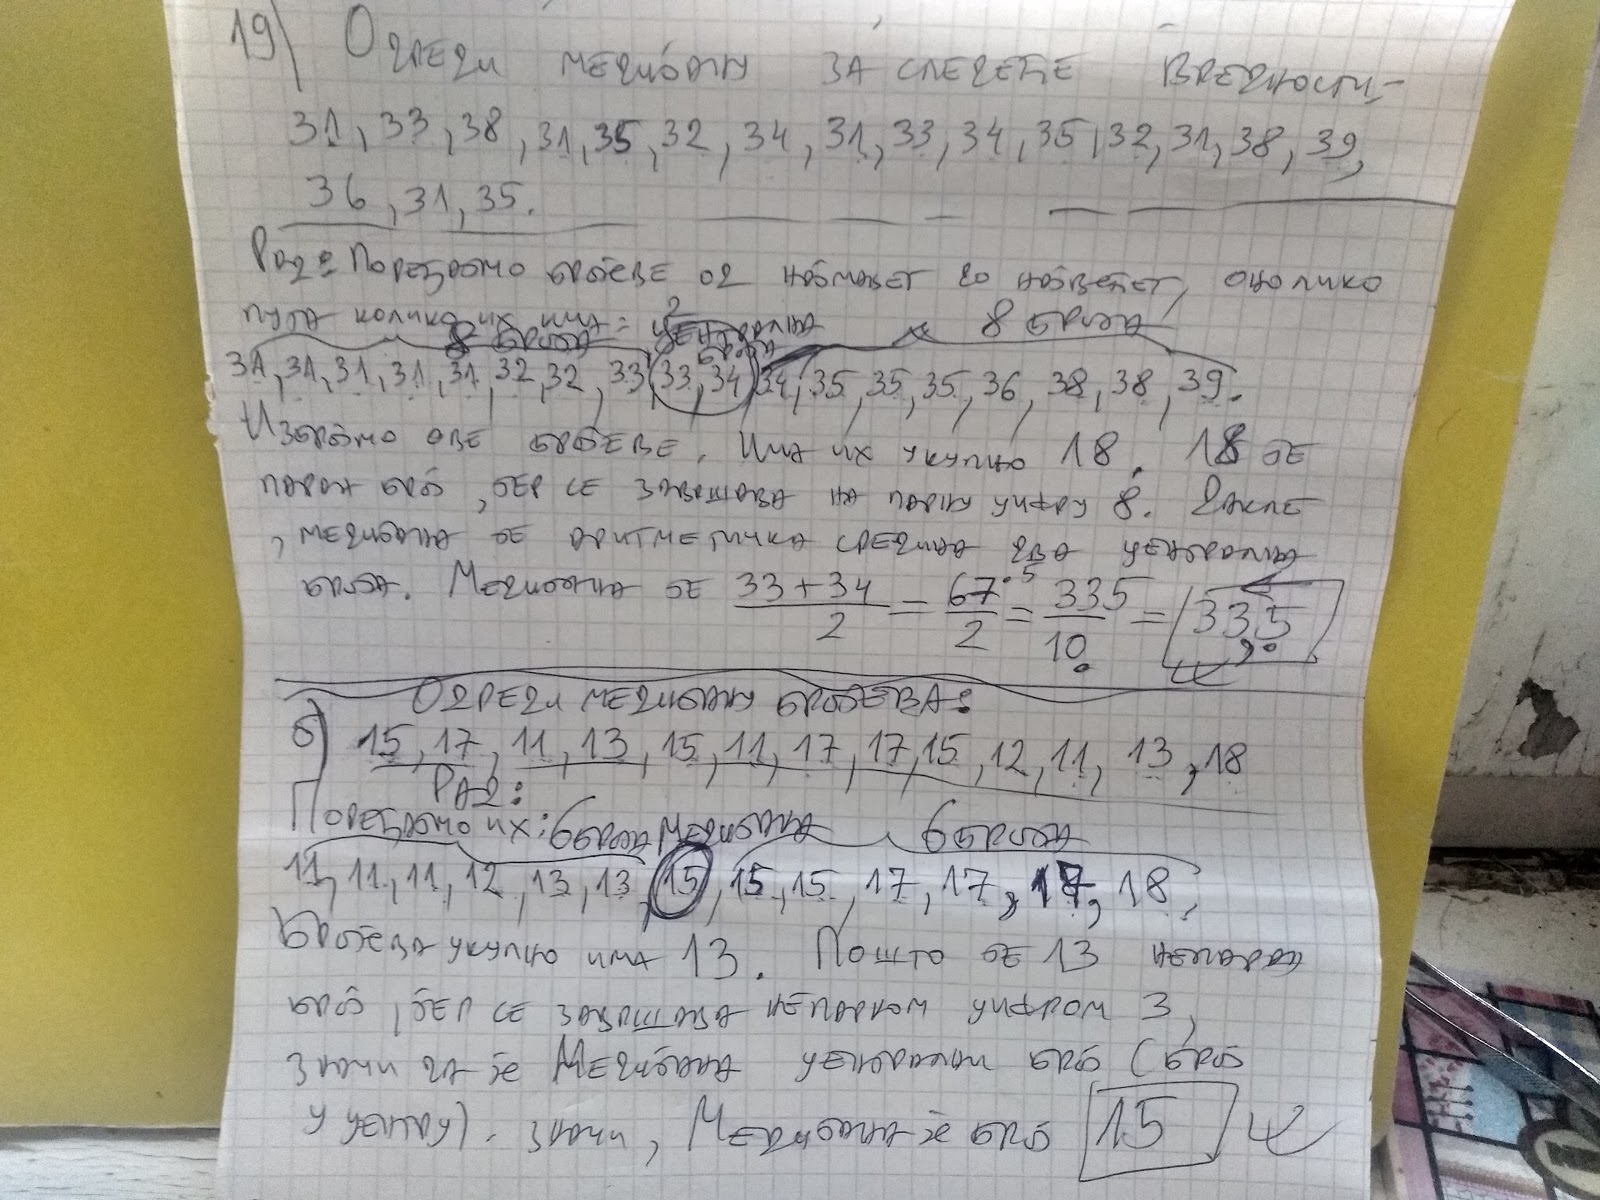 19) Одреди медијану за следеће вредности-
31, 33, 38, 31, 35, 32, 34, 31, 33, 34, 35, 32, 31, 38, 39,
36, 31, 35.
Рад: Поређајмо бројеве од најмањег до највећег, онолико
пута колико их има:
8 броја 2 централна броја 8 броја
31, 31, 31, 31, 31, 32, 32, 33, 33, 34, 34, 35, 35, 35, 36, 38, 38, 39.
Избројмо ове бројеве. Има их укупно 18. 18 је
паран број, јер се завршава на парну цифру 8. Дакле
, медијана је аритметичка средина два централна
броја. Медијана је 33+34/2 = 67·5/2 = 335/10 = 33,5
Одреди медијану бројева:
б) 15, 17, 11, 13, 15, 11, 17, 17, 15, 12, 11, 13, 18
Рад:
Поређајмо их: 6 броја медијана 6 броја
11, 11, 11, 12, 13, 13, 15, 15, 15, 17, 17, 17, 18,
Бројева укупно има 13. Пошто је 13 непаран
број, јер се завршава непарном цифром 3,
значи да је Медијана централни број (број
у центру). Значи, Медијана је број 15